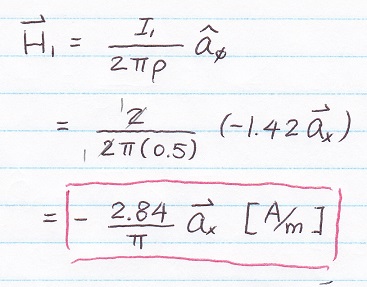 H⃗₁ = I₁ / 2πρ â_φ
= ¹2 / ₁2π(0.5) (-1.42 a⃗ₓ)
= - 2.84 / π a⃗ₓ [A/m]